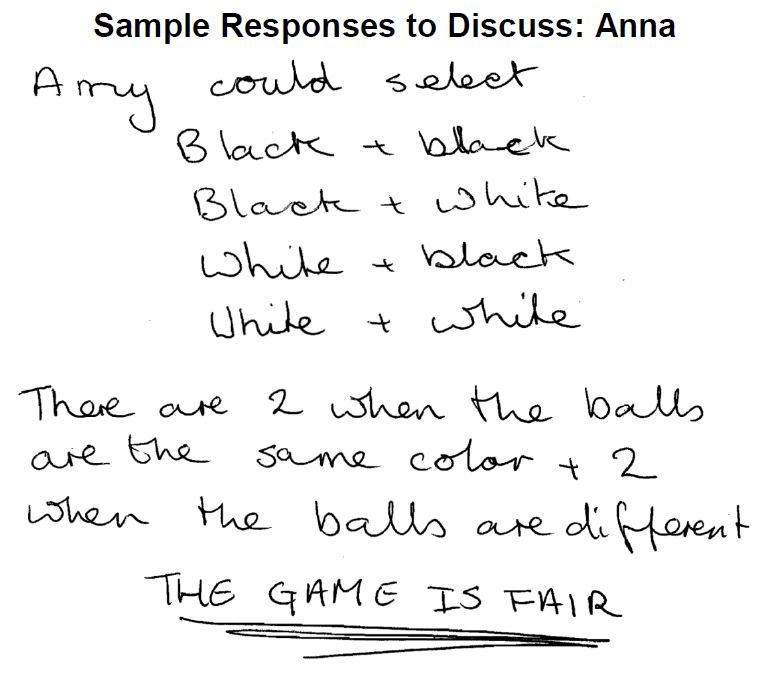 Sample Responses to Discuss: Anna
Amy could select
Black + black
Black + white
White + black
White + white
There are 2 when the balls
are the same color + 2
when the balls are different
THE GAME IS FAIR